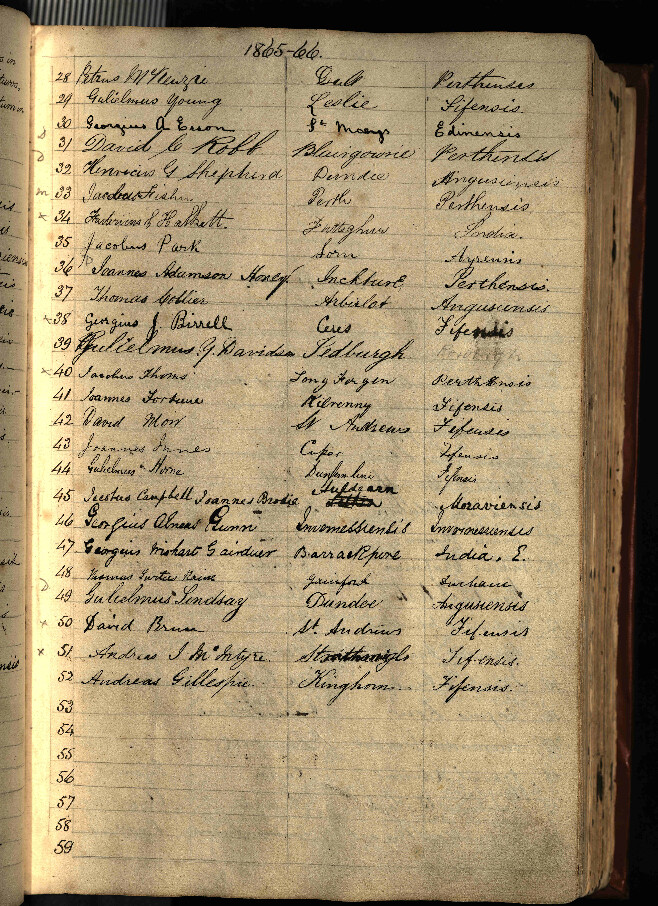 1865-66.
28 Petrus McKenzie Perthensis
29 Gulielmus Young Leslie Fifensis.
30 Georgius A Esson St Edinensis
31 David C Robb Blairgowrie Perthensis
32 Henricus G Shepherd Dundee Angusiensis
33 Jacobus Perth Perthensis
34 India.
35 Jacobus Park Sorn
36 Joannes Adamson Honey Inchture Perthensis.
37 Thomas Collier Arbirlot Angusiensis
x 38 Georgius J. Birrell Ceres Fifensis
39 Gulielmus Y. Davidson Sedburgh
x 40 Jacobus Thoms Longforgan Perthensis
41 Joannes Fortune Kilrenny Fifensis
42 David St Andrews Fifensis
43 Joannes Innes Fifensis
44 Gulielmus Horne Dunfermline Fifensis
45 Campbell Joannes Brodie Moraviensis
46 Georgius Gunn Invernessiensis Invernessiensis
47 Georgius Wishart Gairdner Barrackpore India, E.
48 Thomas
49 Gulielmus Lindsay Dundee Angusiensis
x 50 David St. Andrews Fifensis
x 51 Andreas J. McIntyre Fifensis.
52 Andreas Gillespie Kinghorn Fifensis.
53
54
55
56
57
58
59